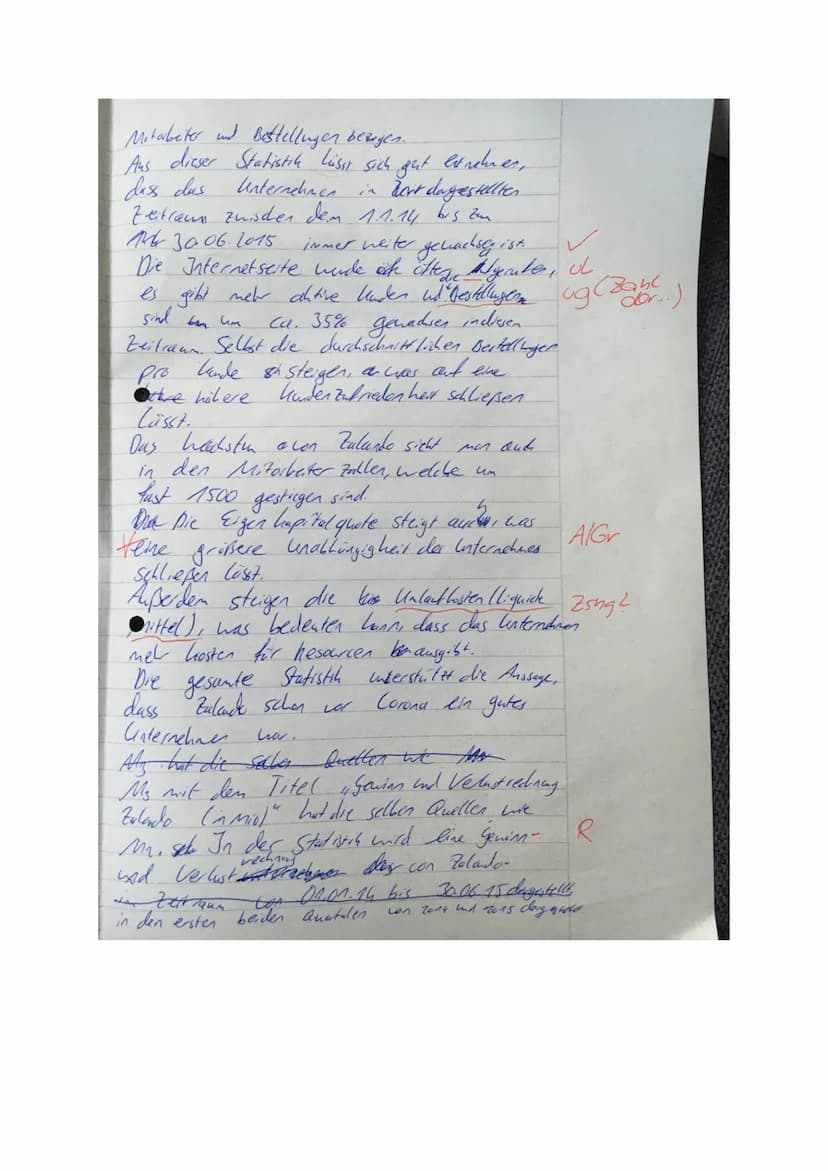 Mitarbeiter und Bestellungen bezogen.
Aus dieser Statistik lässt sich gut entnehmen,
dass das Unternehmen in dargestellten
Zeitraum zwischen dem 1.1.14 bis zum
30.06.2015 immer weiter gewachsen ist. ✓
Die Internetseite wurde öfter Aufgerufen, uL
es gibt mehr aktive Kunden und die Bestellungen ug (Zahl abr..)
sind um ca. 35% gewachsen in diesen
Zeitraum. Selbst die durchschnittlichen Bestellungen
pro Kunde steigen, was auf eine
höhere Kundenzufriedenheit schließen
lässt.
Das Wachstum von Zalando sieht man auch
in den Mitarbeiter Zahlen, welche um
fast 1500 gestiegen sind.
Die Eigenkapitalquote steigt auch, was
eine größere Unabhängigkeit des Unternehmens A/Gr
schließen lässt.
Außerdem steigen die Umlaufkosten (liquide Zshg?
mittel), was bedeuten kann, dass das Unternehmen
mehr kosten für Resourcen ausgibt.
Die gesamte Statistik unterstützt die Aussage,
dass Zalando schon vor Corona ein gutes
Unternehmen war.
M3 hat die selben Quellen wie
M3 mit dem Titel „Gewinn und Verlustrechnung
Zalando (in Mio)" hat die selben Quellen wie
In der Statistik wird eine Gewinn- R
und Verlustrechnung von Zalando
im Zeitraum von 01.01.14 bis 30.06.15 dargestellt
in den ersten beiden Quatalen von 2014 und 2015 dargestellt